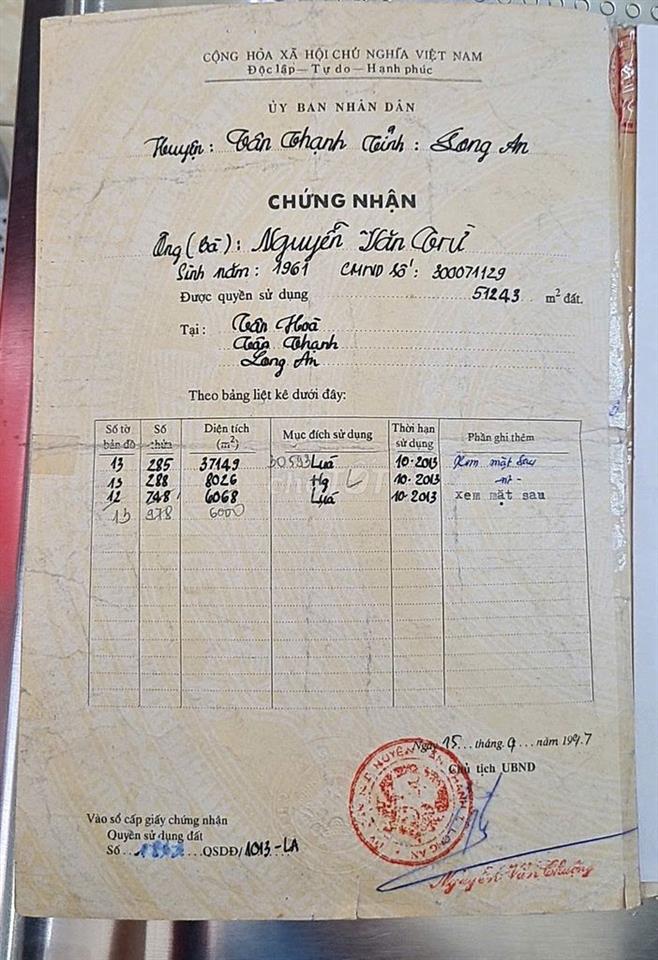 CỘNG HÒA XÃ HỘI CHỦ NGHĨA VIỆT NAM
Độc lập — Tự do — Hạnh phúc
ỦY BAN NHÂN DÂN
Huyện: Tân Thạnh Tỉnh: Long An
CHỨNG NHẬN
Ông (bà): Nguyễn Văn Trừ
Sinh năm: 1961 CMND số: 300071129
Được quyền sử dụng 51243 m² đất.
Tại: Tân Hoà
Tân Thạnh
Long An
Theo bảng liệt kê dưới đây:
Số tờ bản đồ Số thửa Diện tích (m²) Mục đích sử dụng Thời hạn sử dụng Phần ghi thêm
13 285 37149 30593 Luá 10-2013 Xem mặt sau
13 288 8026 Hg 10-2013 -nt-
12 748 6068 Luá 10-2013 xem mặt sau
13 978 6000
Ngày 15 tháng 9 năm 1997
Chủ tịch UBND
Vào sổ cấp giấy chứng nhận
Quyền sử dụng đất
Số QSDĐ/1013-LA
Nguyễn Văn Chuông